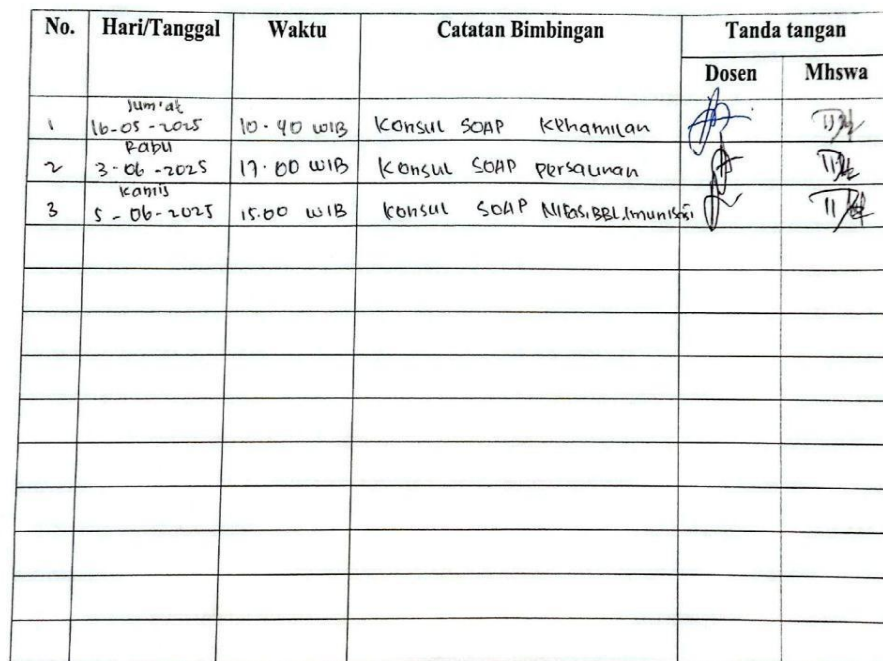 No. Hari/Tanggal Waktu Catatan Bimbingan Tanda tangan
Dosen Mhswa
Jum'at
1 16-05-2025 10.40 WIB Konsul SOAP Kehamilan
Rabu
2 3-06-2025 17.00 WIB Konsul SOAP Persalinan
Kamis
3 5-06-2025 15.00 WIB Konsul SOAP Nifas, BBL, Imunisasi